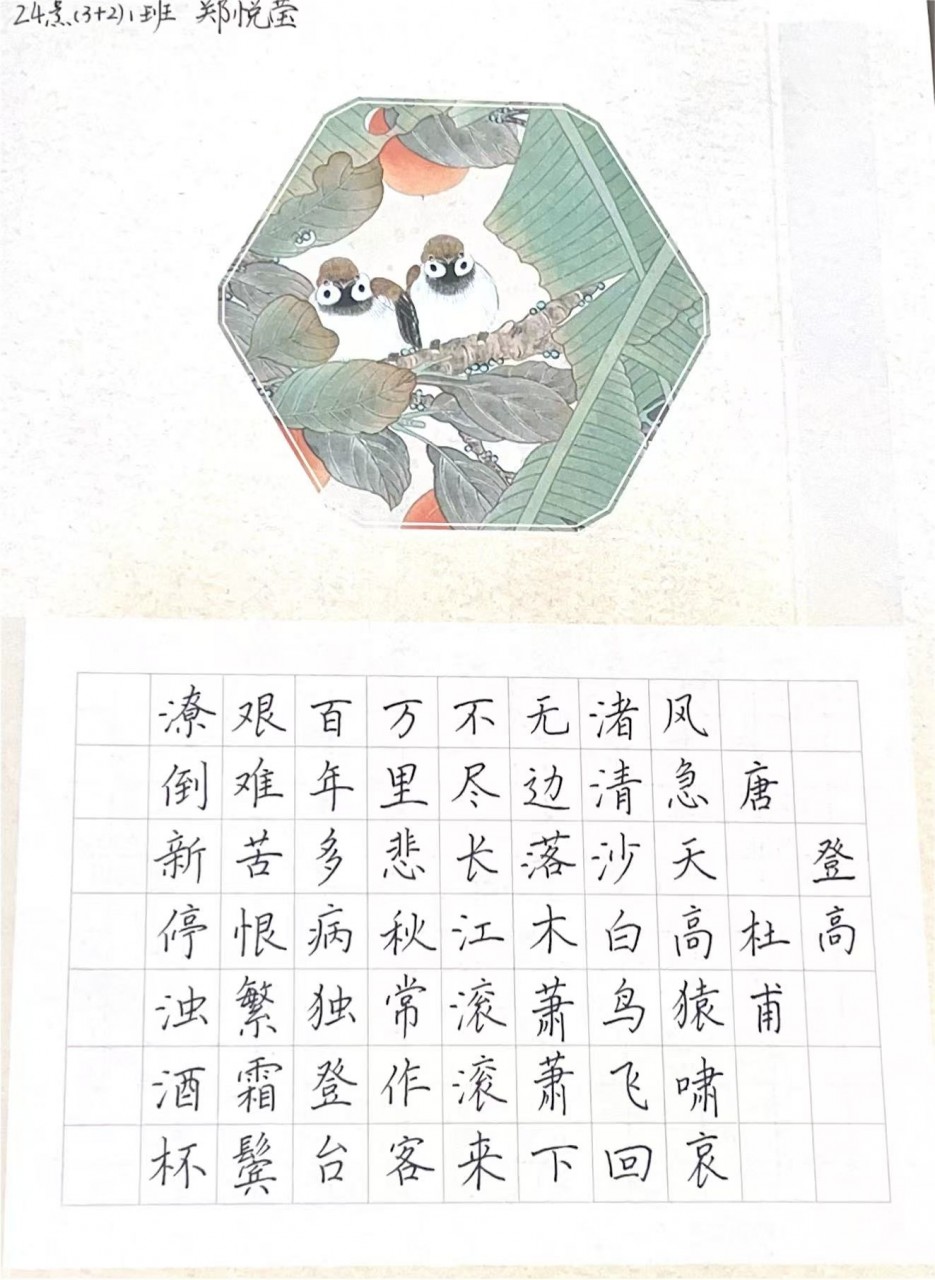 24点(3+2)1班 郑悦莹
登高
唐 杜甫
风急天高猿啸哀
渚清沙白鸟飞回
无边落木萧萧下
不尽长江滚滚来
万里悲秋常作客
百年多病独登台
艰难苦恨繁霜鬓
潦倒新停浊酒杯